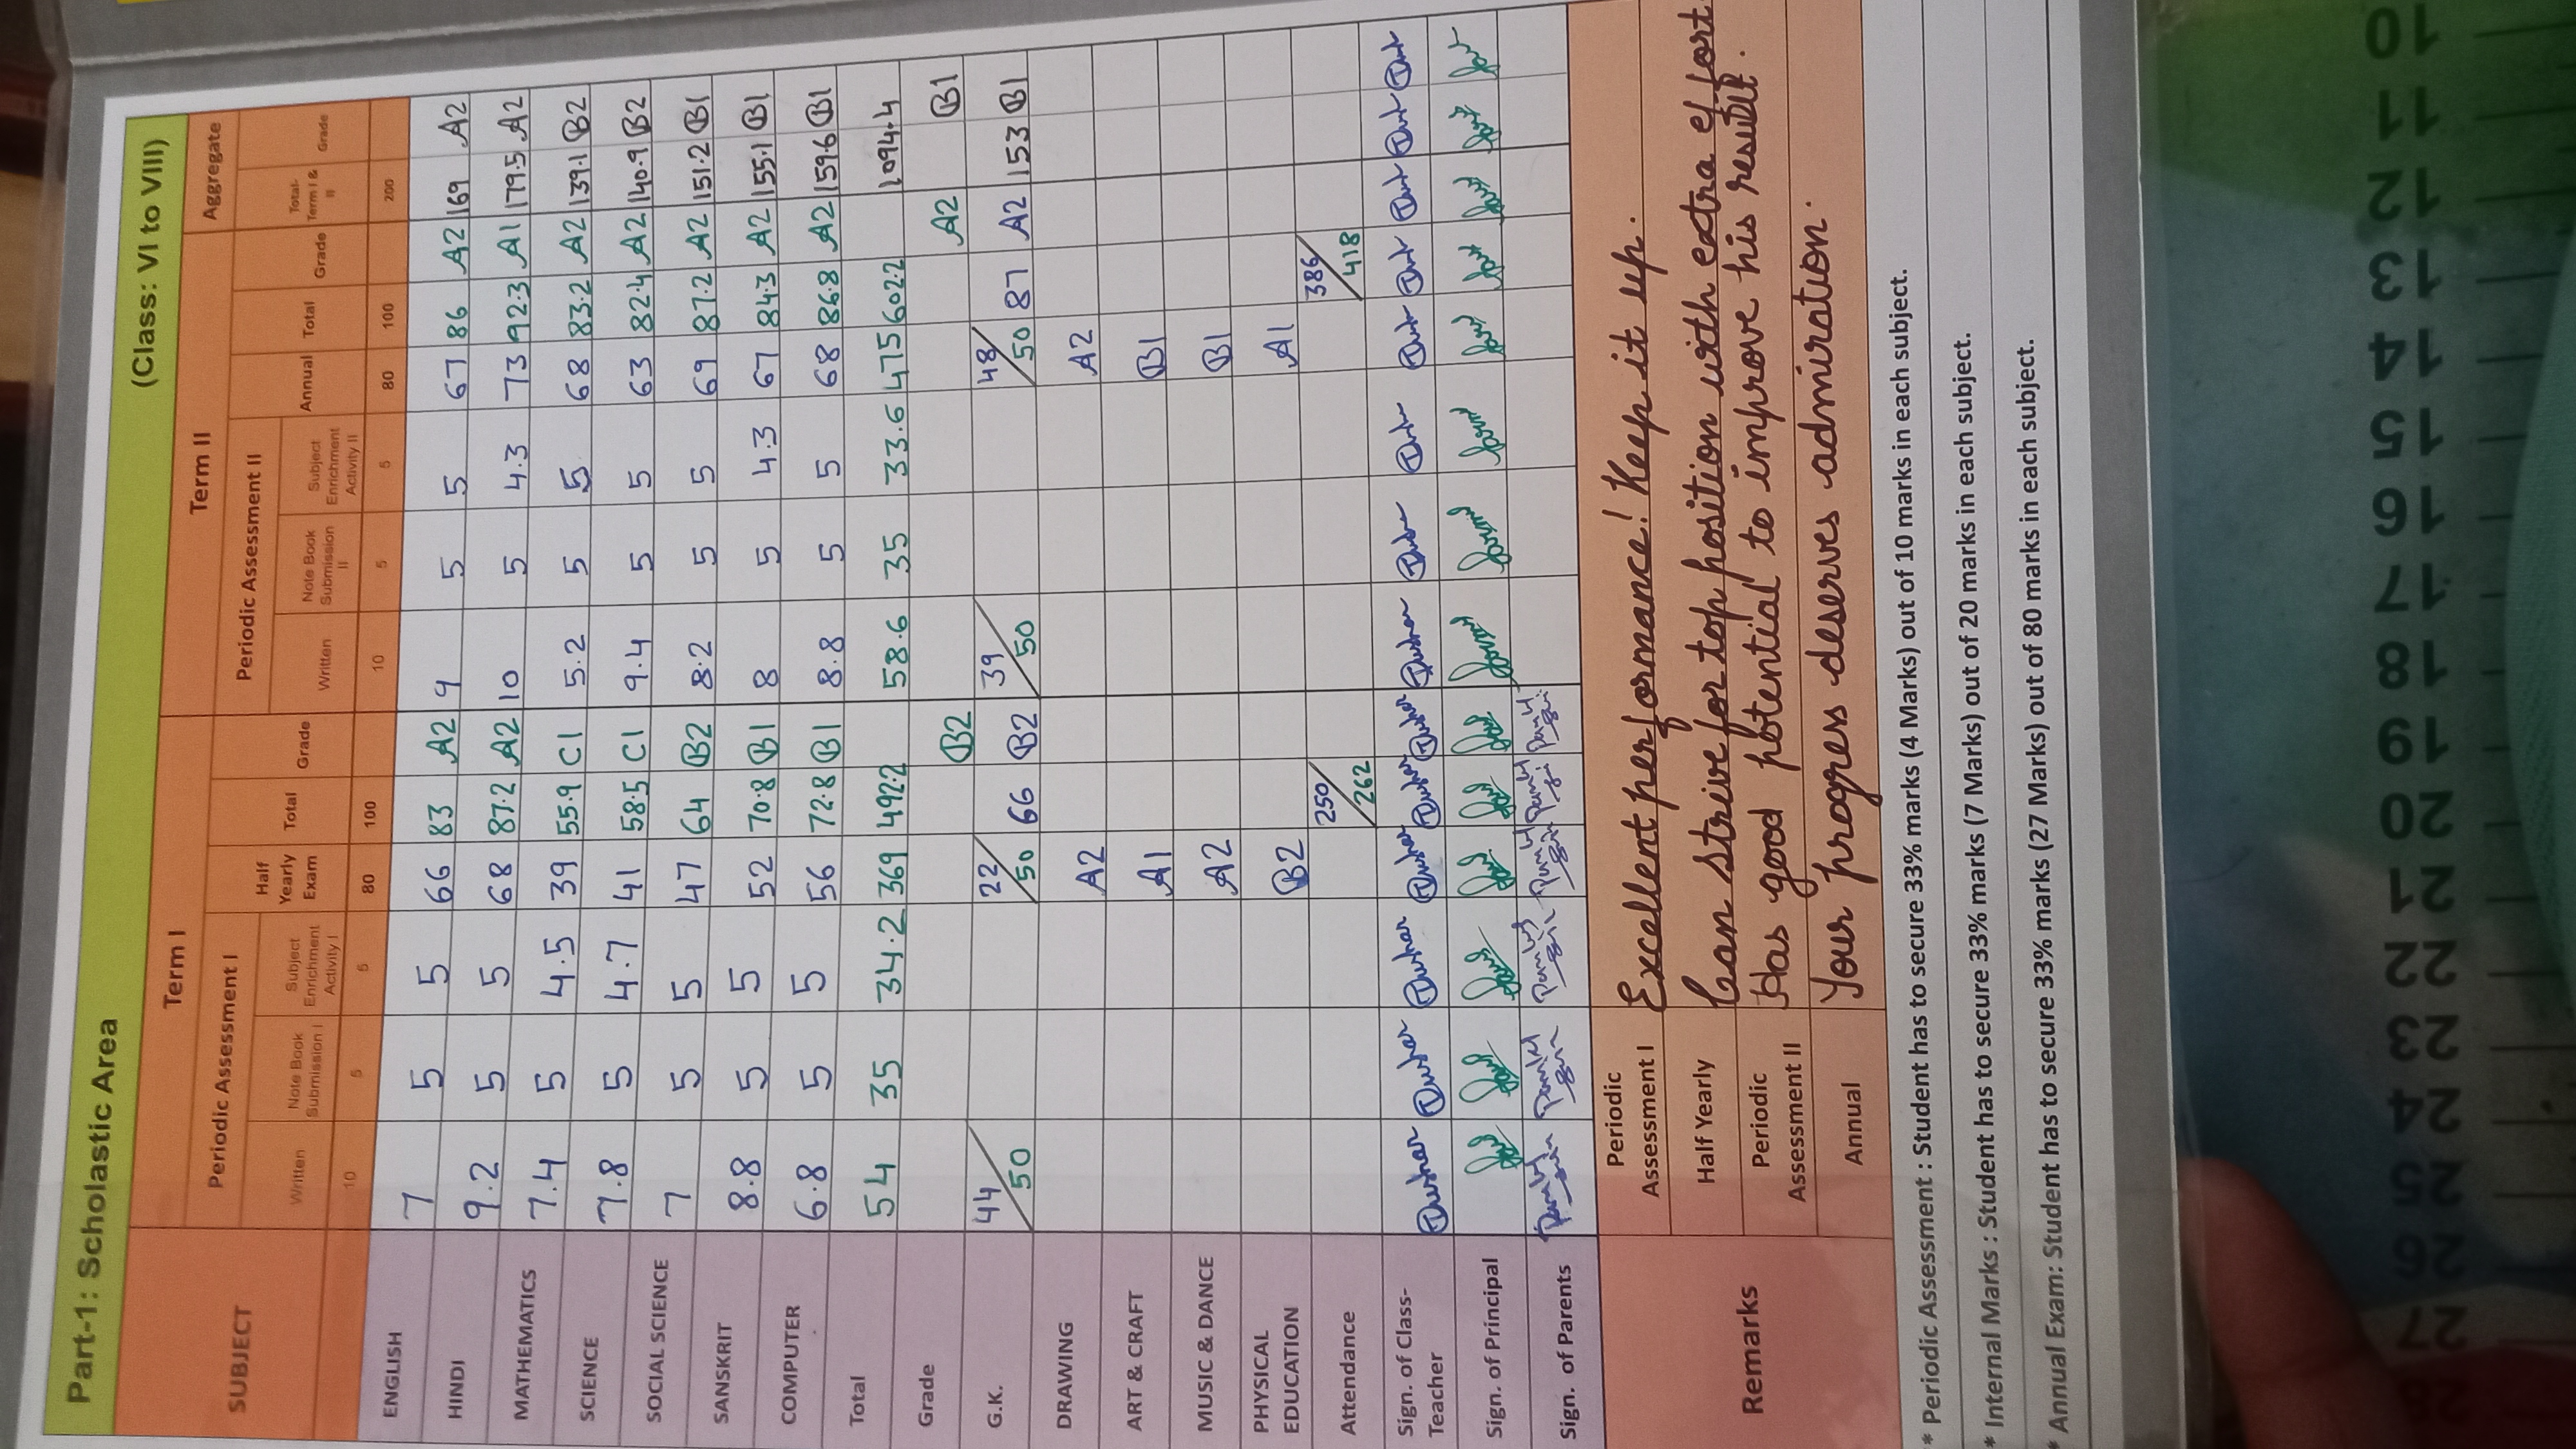 Part-1: Scholastic Area (Class: VI to VIII)
SUBJECT Term I Term II Aggregate
Periodic Assessment I Half Yearly Exam Total Grade Periodic Assessment II Annual Total Grade Total- Term I & II Grade
Written Note Book Submission I Subject Enrichment Activity I Written Note Book Submission II Subject Enrichment Activity II
10 5 5 80 100 10 5 5 80 100 200
ENGLISH 7 5 5 66 83 A2 9 5 5 67 86 A2 169 A2
HINDI 9.2 5 5 68 87.2 A2 10 5 4.3 73 92.3 A1 179.5 A2
MATHEMATICS 7.4 5 4.5 39 55.9 C1 5.2 5 5 68 83.2 A2 139.1 B2
SCIENCE 7.8 5 4.7 41 58.5 C1 9.4 5 5 63 82.4 A2 140.9 B2
SOCIAL SCIENCE 7 5 5 47 64 B2 8.2 5 5 69 87.2 A2 151.2 B1
SANSKRIT 8.8 5 5 52 70.8 B1 8 5 4.3 67 84.3 A2 155.1 B1
COMPUTER 6.8 5 5 56 72.8 B1 8.8 5 5 68 86.8 A2 159.6 B1
Total 54 35 34.2 369 492.2 58.6 35 33.6 475 602.2 1094.4
Grade B2 A2 B1
G.K. 44/50 22/50 66 B2 39/50 48/50 87 A2 153 B1
DRAWING A2 A2
ART & CRAFT A1 B1
MUSIC & DANCE A2 B1
PHYSICAL EDUCATION B2 A1
Attendance 250/262 386/418
Sign. of Class-Teacher
Sign. of Principal
Sign. of Parents
Remarks
Periodic Assessment I Excellent performance! Keep it up.
Half Yearly Can strive for top position with extra effort.
Periodic Assessment II Has good potential to improve his result.
Annual Your progress deserves admiration.
* Periodic Assessment : Student has to secure 33% marks (4 Marks) out of 10 marks in each subject.
* Internal Marks : Student has to secure 33% marks (7 Marks) out of 20 marks in each subject.
* Annual Exam: Student has to secure 33% marks (27 Marks) out of 80 marks in each subject.
10 11 12 13 14 15 16 17 18 19 20 21 22 23 24 25 26 27 28